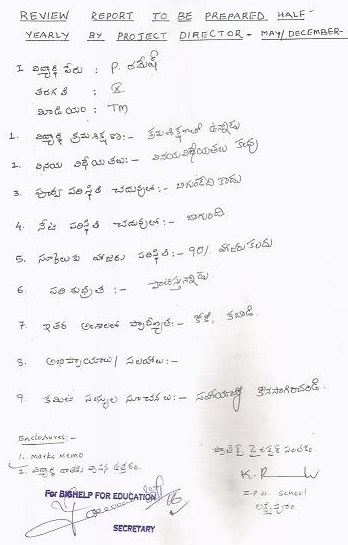 REVIEW REPORT TO BE PREPARED HALF-
YEARLY BY PROJECT DIRECTOR - MAY/DECEMBER-
I విద్యార్థి పేరు : P. రమేష్
తరగతి : X
మీడియం : TM
1. విద్యార్థి క్రమశిక్షణ:- క్రమశిక్షణతో ఉన్నాడు
2. వినయ విధేయతలు:- వినయవిధేయతలు కలవు
3. పూర్వ పరిస్థితి చదువులో:- బాగుండేది కాదు
4. నేటి పరిస్థితి చదువులో:- బాగుంది
5. స్కూలుకు హాజరు పరిస్థితి:- 90%
6. పరిశుభ్రత :- పాటిస్తున్నాడు.
7. ఇతర అంశాలలో ప్రావీణ్యత:- కోకో, కబాడి.
8. అభిప్రాయాలు/ సలహాలు:-
9. కమిటి సభ్యుల సూచనలు:- సహాయాన్ని కొనసాగించండి.
Enclosures:-
1. Marks Memo
2. విద్యార్థి
ప్రాజెక్ట్ డైరెక్టర్ సంతకం.
Z.P.H. School
లక్ష్మీపురం
For BIGHELP FOR EDUCATION
SECRETARY